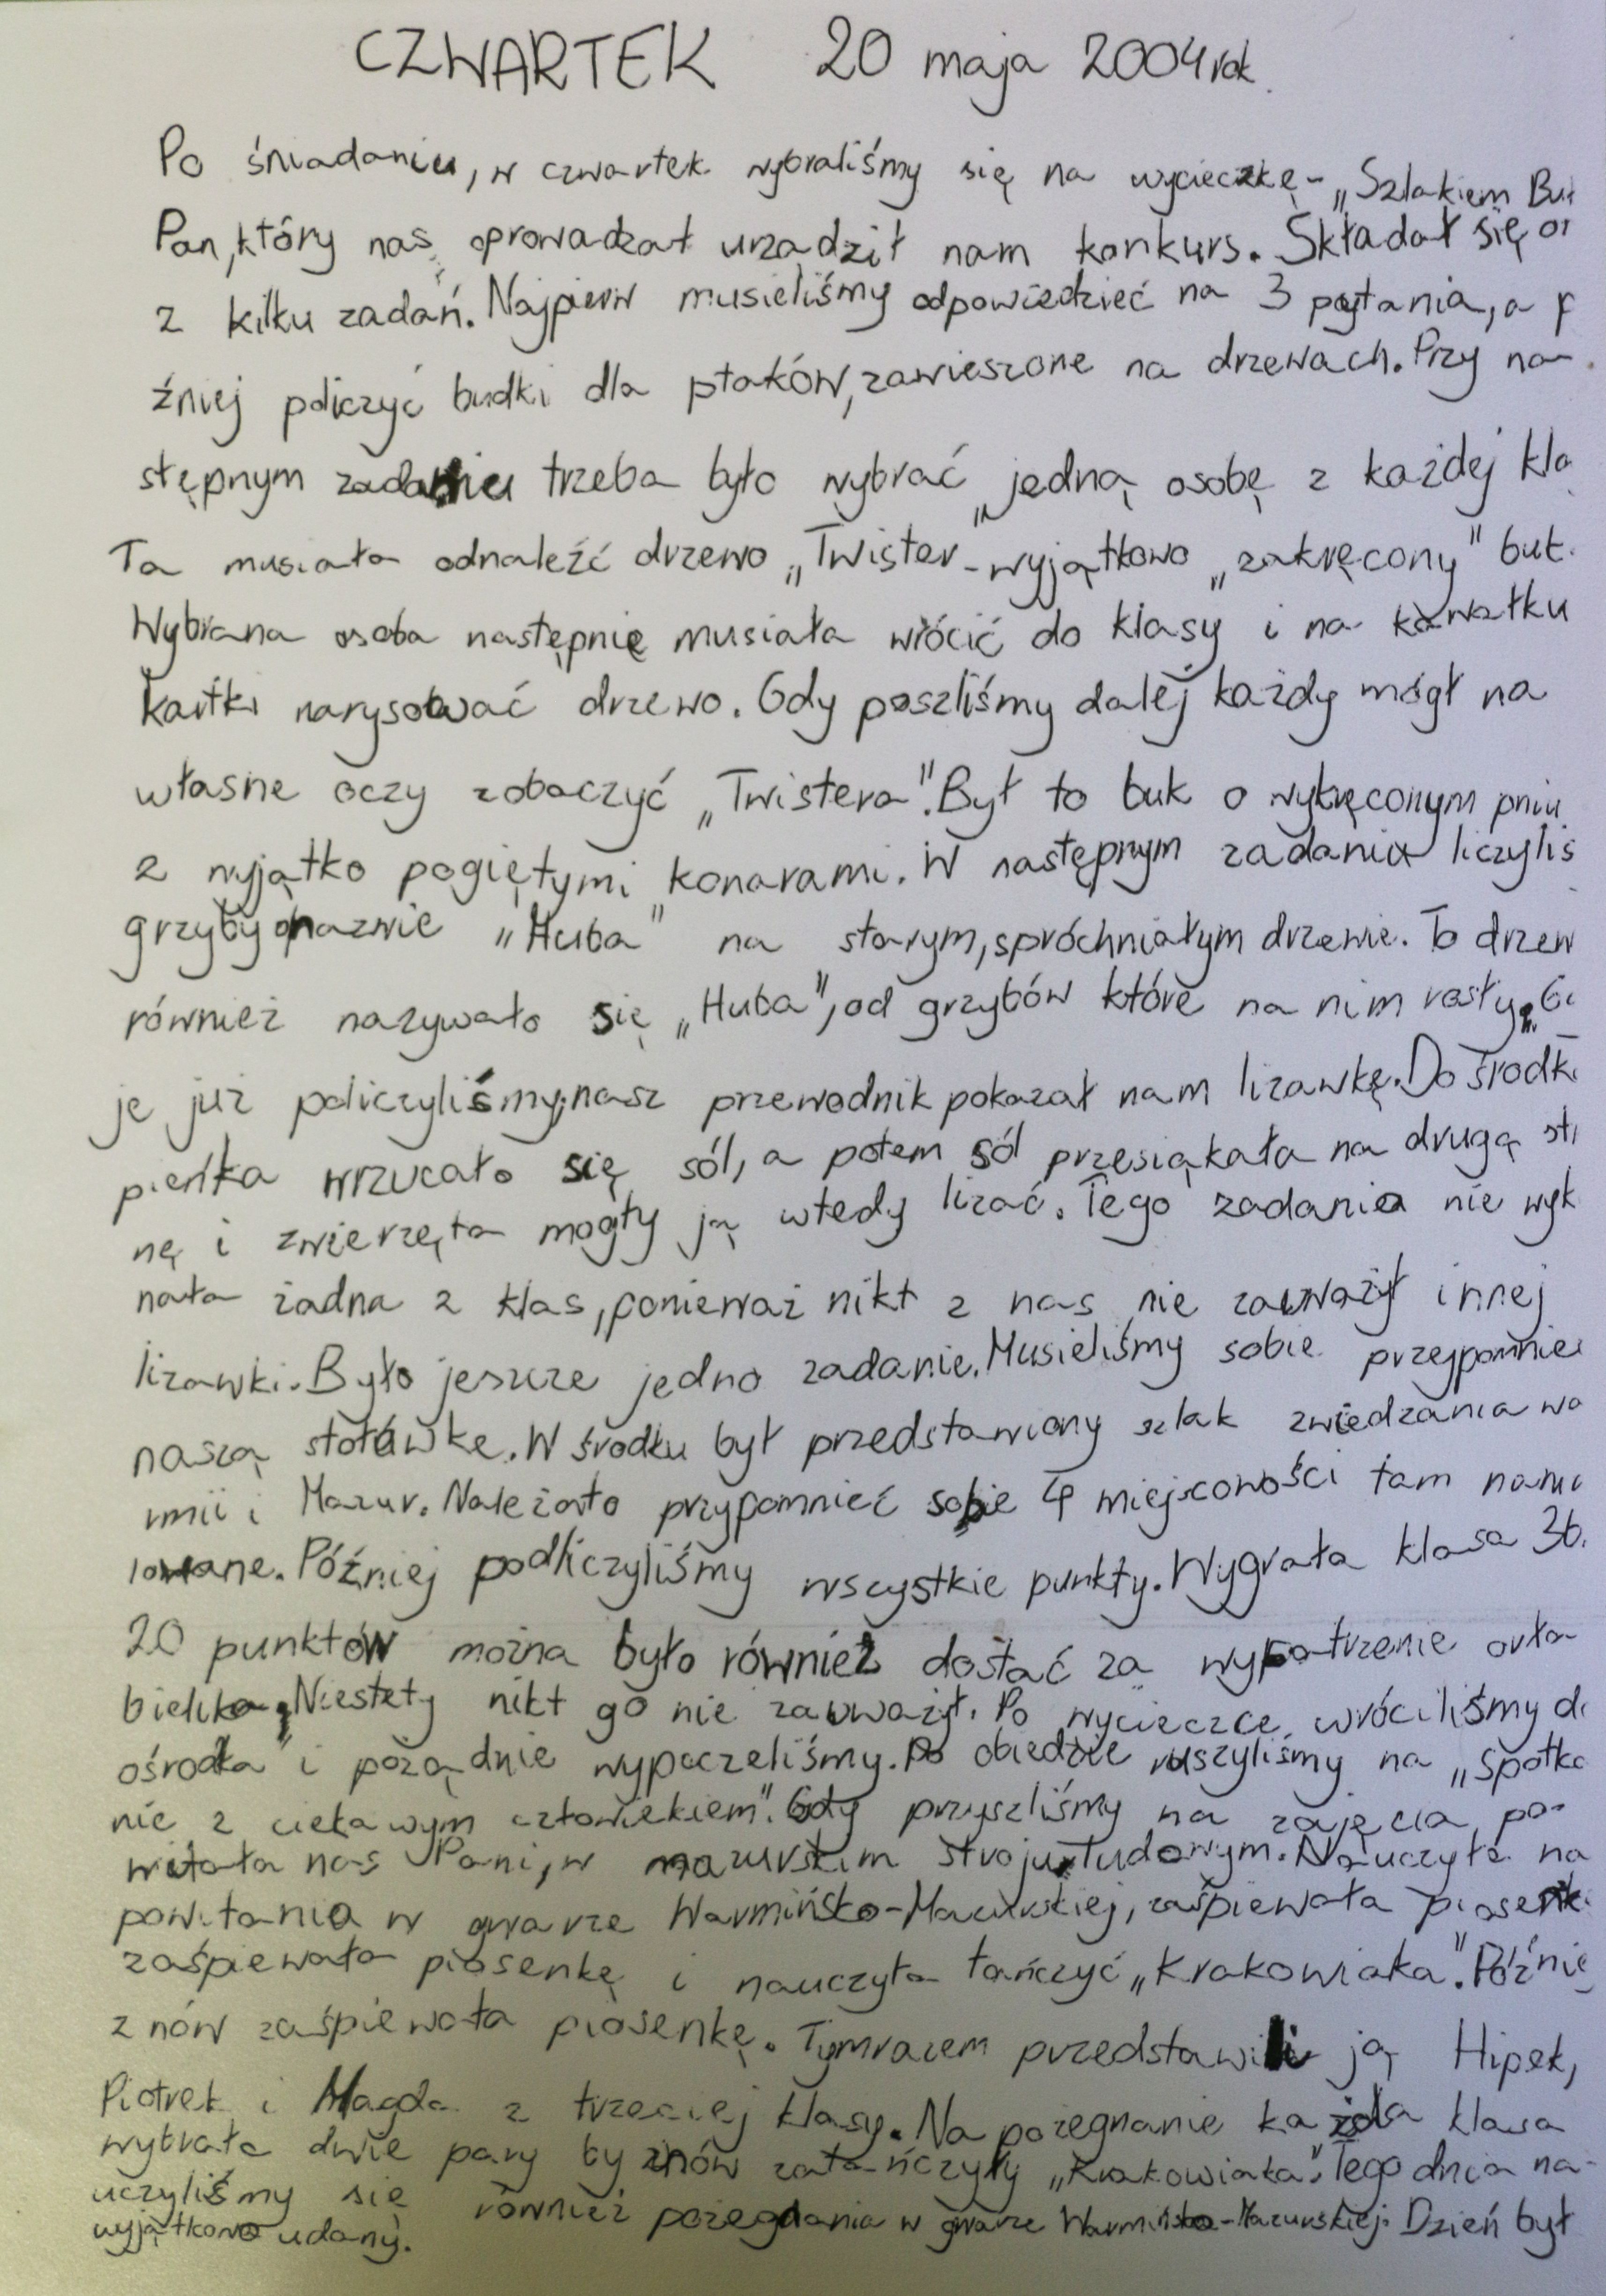 CZWARTEK 20 maja 2004 rok.
Po śniadaniu, w czwartek wybraliśmy się na wycieczkę - „Szlakiem
Pan, który nas oprowadzał urządził nam konkurs. Składał się
z kilku zadań. Najpierw musieliśmy odpowiedzieć na 3 pytania, a p
źniej policzyć budki dla ptaków, zawieszone na drzewach. Przy na-
stępnym zadaniu trzeba było wybrać jedną osobę z każdej kla
Ta musiała odnaleźć drzewo „Twister - wyjątkowo „zakręcony" buk.
Wybrana osoba następnie musiała wrócić do klasy i na kawałku
kartki narysować drzewo. Gdy poszliśmy dalej każdy mógł na
własne oczy zobaczyć „Twistera". Był to buk o wykręconym pniu
z wyjątko pogiętymi konarami. W następnym zadaniu liczyliś
grzyby o nazwie „Huba" na starym, spróchniałym drzewie. To drzew
również nazywało się „Huba", od grzybów które na nim rosły.
je już policzyliśmy, nasz przewodnik pokazał nam lizawkę. Do środk
pieńka wrzucało się sól, a potem sól przesiąkała na drugą st
nę i zwierzęta mogły ją wtedy lizać. Tego zadania nie wyk
nała żadna z klas, ponieważ nikt z nas nie zauważył innej
lizawki. Było jeszcze jedno zadanie. Musieliśmy sobie przypomnie
naszą stołówkę. W środku był przedstawiony szlak zwiedzania Wa
rmii i Mazur. Należało przypomnieć sobie 4 miejscowości tam nama
lowane. Później podliczyliśmy wszystkie punkty. Wygrała klasa 3b.
20 punktów można było również dostać za wypatrzenie orła
bielika. Niestety nikt go nie zauważył. Po wycieczce wróciliśmy d
ośrodka i pożądnie wypoczeliśmy. Po obiedzie ruszyliśmy na „Spotka
nie z ciekawym człowiekiem". Gdy przyszliśmy na zajęcia po-
witała nas Pani, w mazurskim stroju ludowym. Nauczyła na
powitania w gwarze Warmińsko-Mazurskiej, zaśpiewała piosenk
zaśpiewała piosenkę i nauczyła tańczyć „Krakowiaka". Późnie
znów zaśpiewała piosenkę. Tymrazem przedstawili ją Hipek,
Piotrek i Magda z trzeciej klasy. Na pożegnanie każda klasa
wybrała dwie pary by znów zatańczyły „Krakowiaka". Tego dnia na-
uczyliśmy się również pożegnania w gwarze Warmińsko-Mazurskiej. Dzień był
wyjątkowo udany.